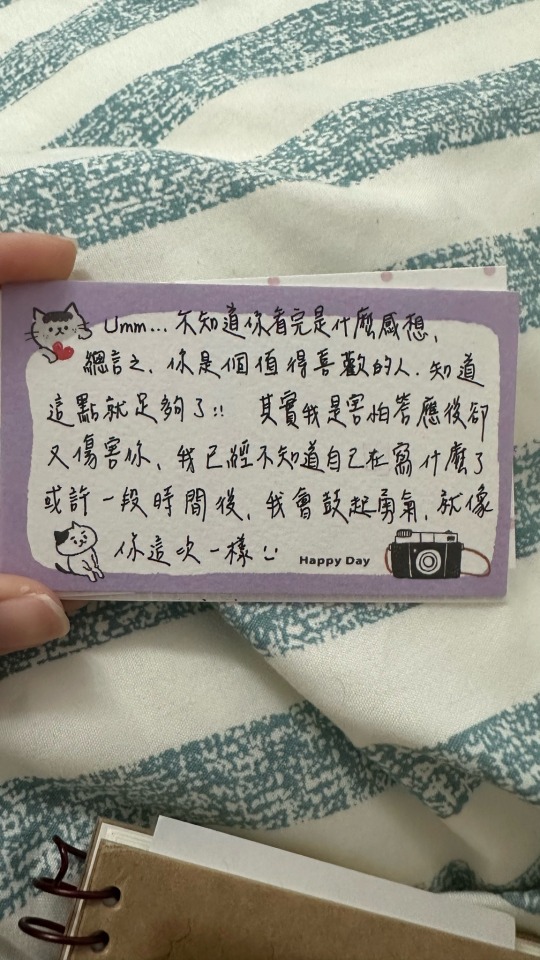 Umm... 不知道你看完是什麼感想,
總言之、你是個值得喜歡的人. 知道
這點就足夠了!! 其實我是害怕答應後卻
又傷害你、我已經不知道自己在寫什麼了
或許一段時間後、我會鼓起勇氣、就像
你這次一樣
Happy Day